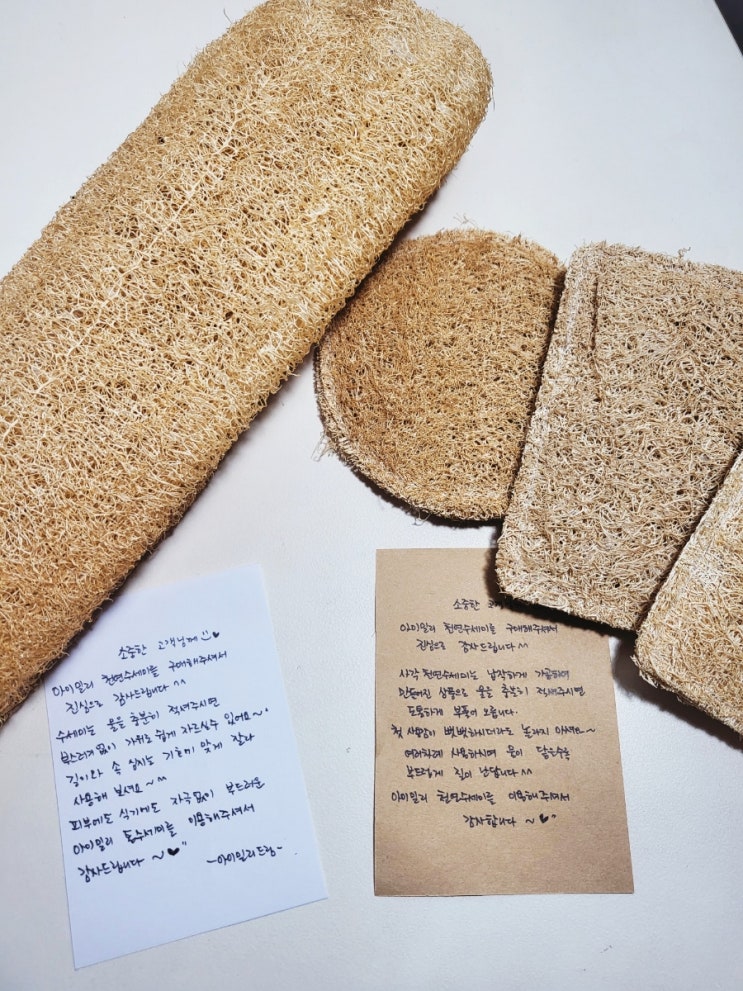 소중한 고객님께
아이밀리 천연수세미를 구매해주셔서
진심으로 감사드립니다 ^^
수세미는 물을 충분히 적셔주시면
부스러기 없이 가위로 쉽게 자르실수 있어요~
길이와 속 심지는 기호에 맞게 잘라
사용해 보세요~^^
피부에도 식기에도 자극없이 부드러운
아이밀리 통수세미를 이용해주셔서
감사드립니다 ~♥"
-아이밀리드림-
소중한 고
아이밀리 천연수세미를 구매해주셔서
진심으로 감사드립니다 ^^
사각 천연수세미는 납작하게 가공하여
만들어진 상품으로 물을 충분히 적셔주시면
도톰하게 부풀어 오릅니다.
첫 사용감이 뻣뻣하시더라도 놀라지 마세요~
여러차례 사용하시며 물이 닿은수록
부드럽게 길이 난답니다 ^^
아이밀리 천연수세미를 이용해주셔서
감사합니다 ~♥"